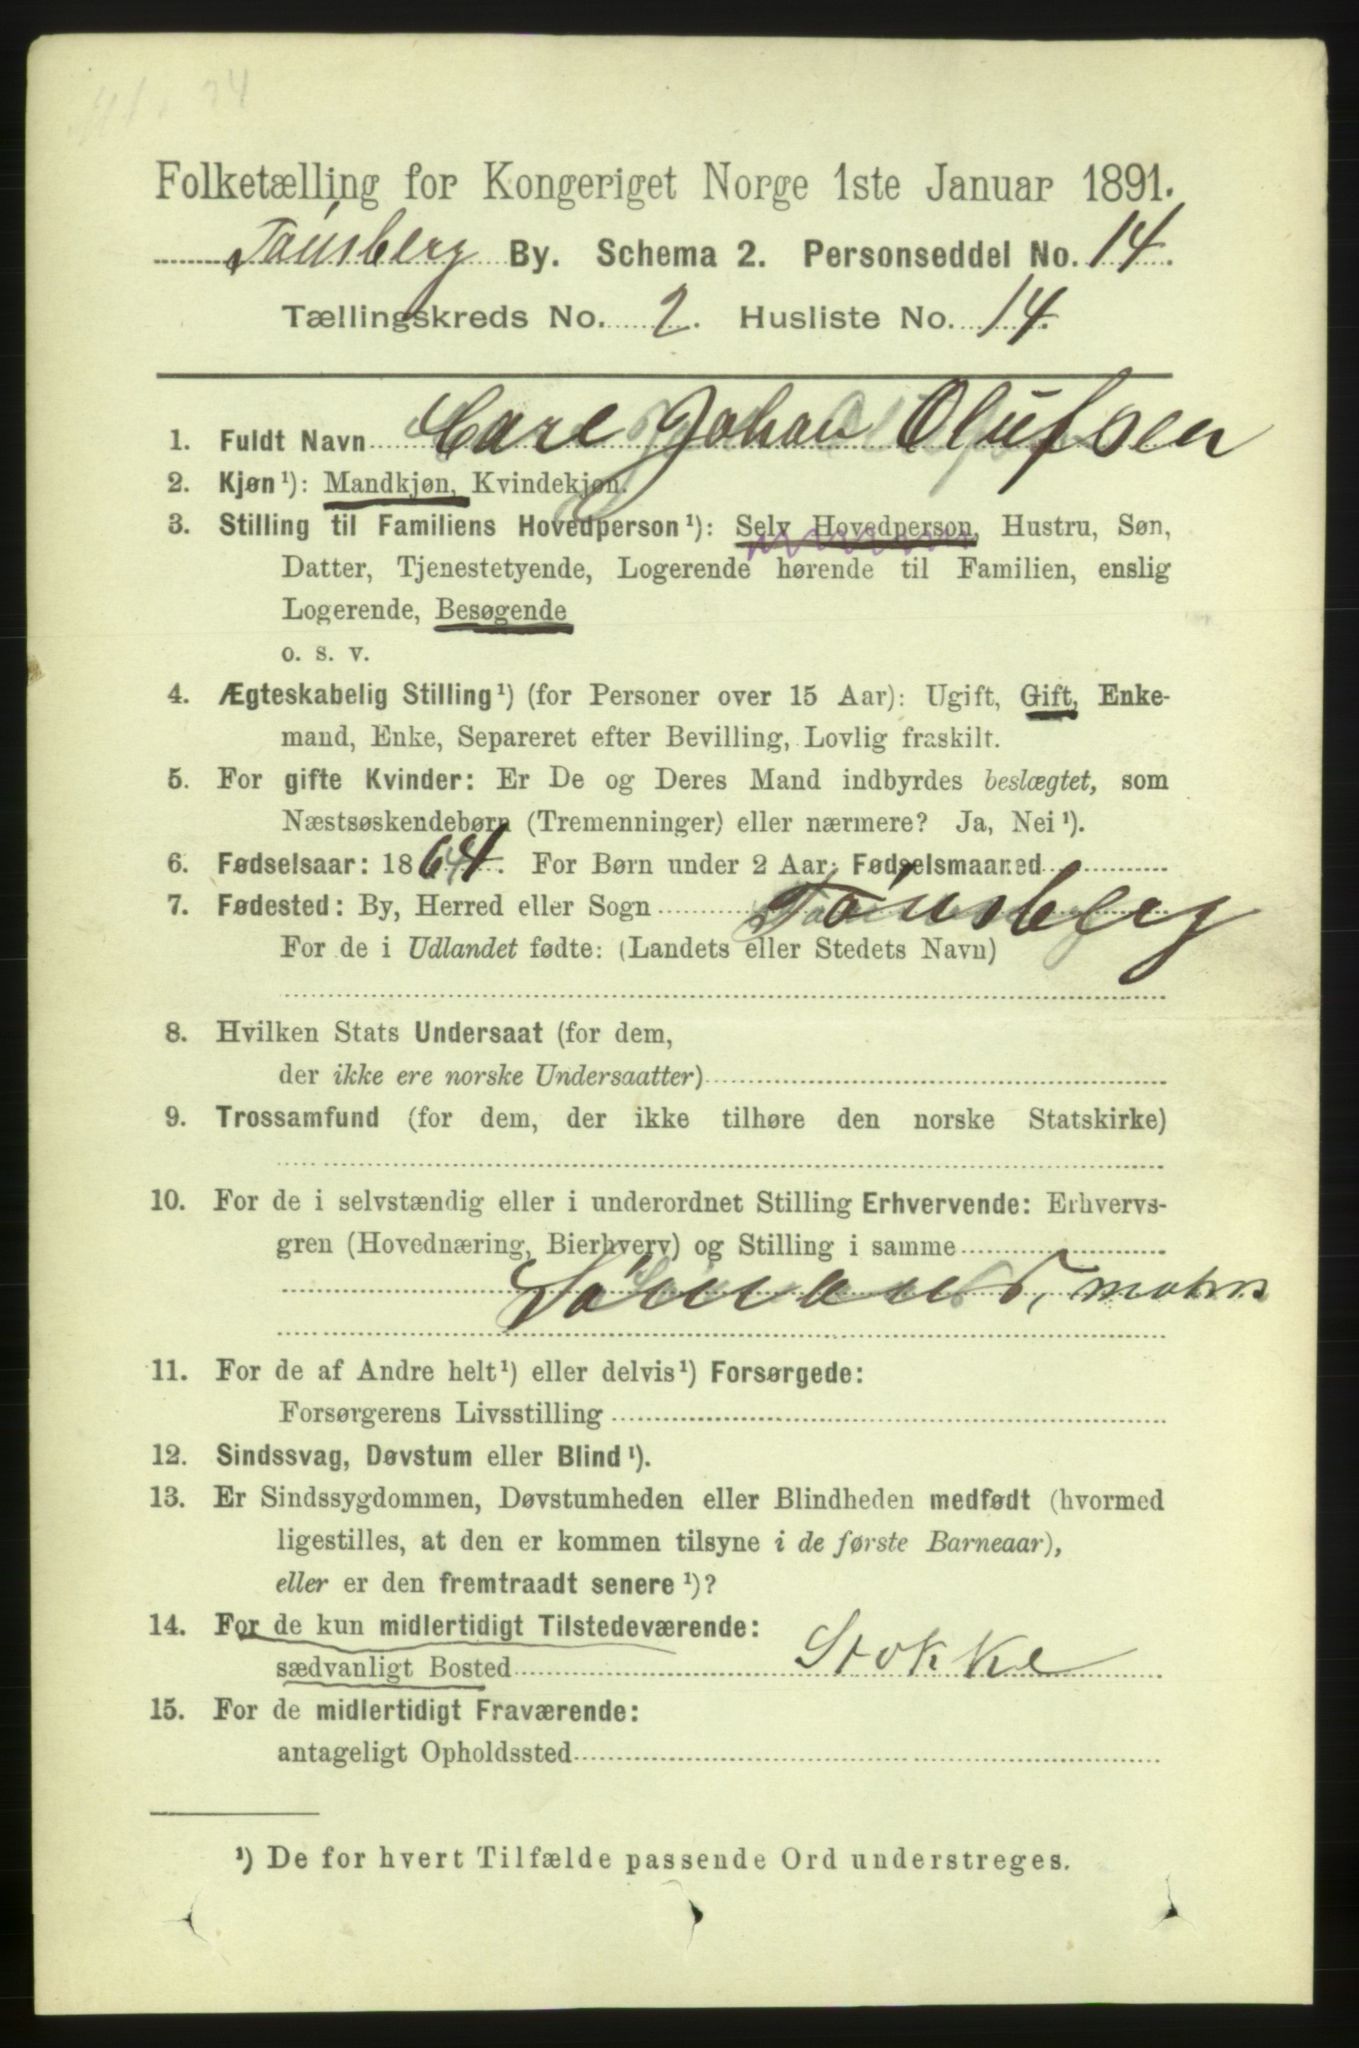 Folketælling for Kongeriget Norge 1ste Januar 1891.
Tønsberg By. Schema 2. Personseddel No. 14.
Tællingskreds No. 2. Husliste No. 14.
1. Fuldt Navn Carl Johan Olufsen
2. Kjøn¹): Mandkjøn, Kvindekjøn.
3. Stilling til Familiens Hovedperson¹): Selv Hovedperson, Hustru, Søn,
Datter, Tjenestetyende, Logerende hørende til Familien, enslig
Logerende, Besøgende
o. s. v.
4. Ægteskabelig Stilling¹) (for Personer over 15 Aar): Ugift, Gift, Enke-
mand, Enke, Separeret efter Bevilling, Lovlig fraskilt.
5. For gifte Kvinder: Er De og Deres Mand indbyrdes beslægtet, som
Næstsøskendebørn (Tremenninger) eller nærmere? Ja, Nei¹).
6. Fødselsaar: 1864. For Børn under 2 Aar: Fødselsmaaned
7. Fødested: By, Herred eller Sogn Tønsberg
For de i Udlandet fødte: (Landets eller Stedets Navn)
8. Hvilken Stats Undersaat (for dem,
der ikke ere norske Undersaatter)
9. Trossamfund (for dem, der ikke tilhøre den norske Statskirke)
10. For de i selvstændig eller i underordnet Stilling Erhvervende: Erhvervs-
gren (Hovednæring, Bierhverv) og Stilling i samme
Sømand, matros
11. For de af Andre helt¹) eller delvis¹) Forsørgede:
Forsørgerens Livsstilling
12. Sindssvag, Døvstum eller Blind¹).
13. Er Sindssygdommen, Døvstumheden eller Blindheden medfødt (hvormed
ligestilles, at den er kommen tilsyne i de første Barneaar),
eller er den fremtraadt senere¹)?
14. For de kun midlertidigt Tilstedeværende:
sædvanligt Bosted Stokke
15. For de midlertidigt Fraværende:
antageligt Opholdssted
¹) De for hvert Tilfælde passende Ord understreges.